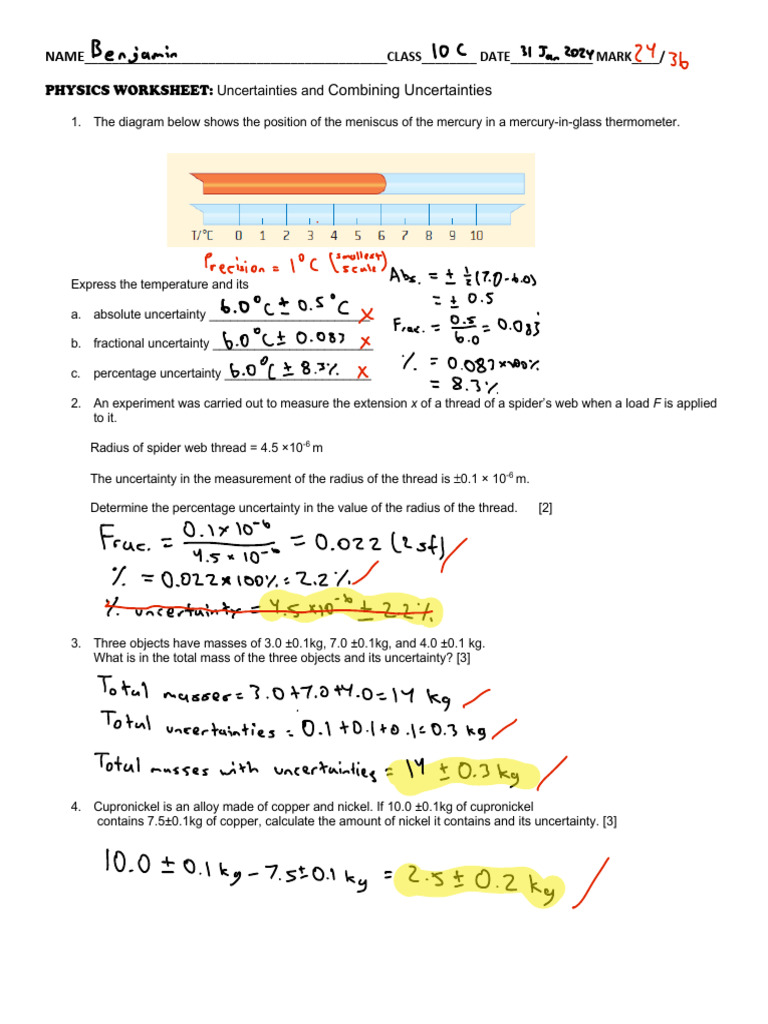 NAME Benjamin CLASS 10 C DATE 31 Jan 2024 MARK 24/36
PHYSICS WORKSHEET: Uncertainties and Combining Uncertainties
1. The diagram below shows the position of the meniscus of the mercury in a mercury-in-glass thermometer.
T/°C 0 1 2 3 4 5 6 7 8 9 10
Precision = 1°C (smallest scale)
Abs. = ± 1/2 (7.0 - 6.0)
= ± 0.5
Express the temperature and its
a. absolute uncertainty 6.0°C ± 0.5°C x
Frac. = 0.5/6.0 = 0.083
b. fractional uncertainty 6.0°C ± 0.083 x
% = 0.083 × 100%
= 8.3%
c. percentage uncertainty 6.0°C ± 8.3% x
2. An experiment was carried out to measure the extension x of a thread of a spider's web when a load F is applied
to it.
Radius of spider web thread = 4.5 ×10⁻⁶ m
The uncertainty in the measurement of the radius of the thread is ±0.1 × 10⁻⁶ m.
Determine the percentage uncertainty in the value of the radius of the thread. [2]
Frac. = 0.1 × 10⁻⁶ / 4.5 × 10⁻⁶ = 0.022 (2sf)
% = 0.022 × 100% = 2.2%
% uncertainty = 4.5 × 10⁻⁶ ± 2.2%
3. Three objects have masses of 3.0 ±0.1kg, 7.0 ±0.1kg, and 4.0 ±0.1 kg.
What is in the total mass of the three objects and its uncertainty? [3]
Total masses = 3.0 + 7.0 + 4.0 = 14 kg
Total uncertainties = 0.1 + 0.1 + 0.1 = 0.3 kg
Total masses with uncertainties = 14 ± 0.3 kg
4. Cupronickel is an alloy made of copper and nickel. If 10.0 ±0.1kg of cupronickel
contains 7.5±0.1kg of copper, calculate the amount of nickel it contains and its uncertainty. [3]
10.0 ± 0.1 kg - 7.5 ± 0.1 kg = 2.5 ± 0.2 kg